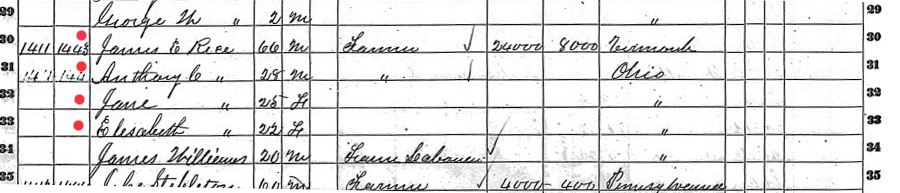 29 George W " 2 m " 29
30 1411 1443 James E Rice 66 m Farmer 24000 8000 Vermont 30
31 Anthony C " 28 m " Ohio 31
32 Jane " 25 f " 32
33 Elesabeth " 22 f " 33
34 James Williems 20 m Farm Labourer " 34
35 Farmer 4000 400 Pennsylvania 35